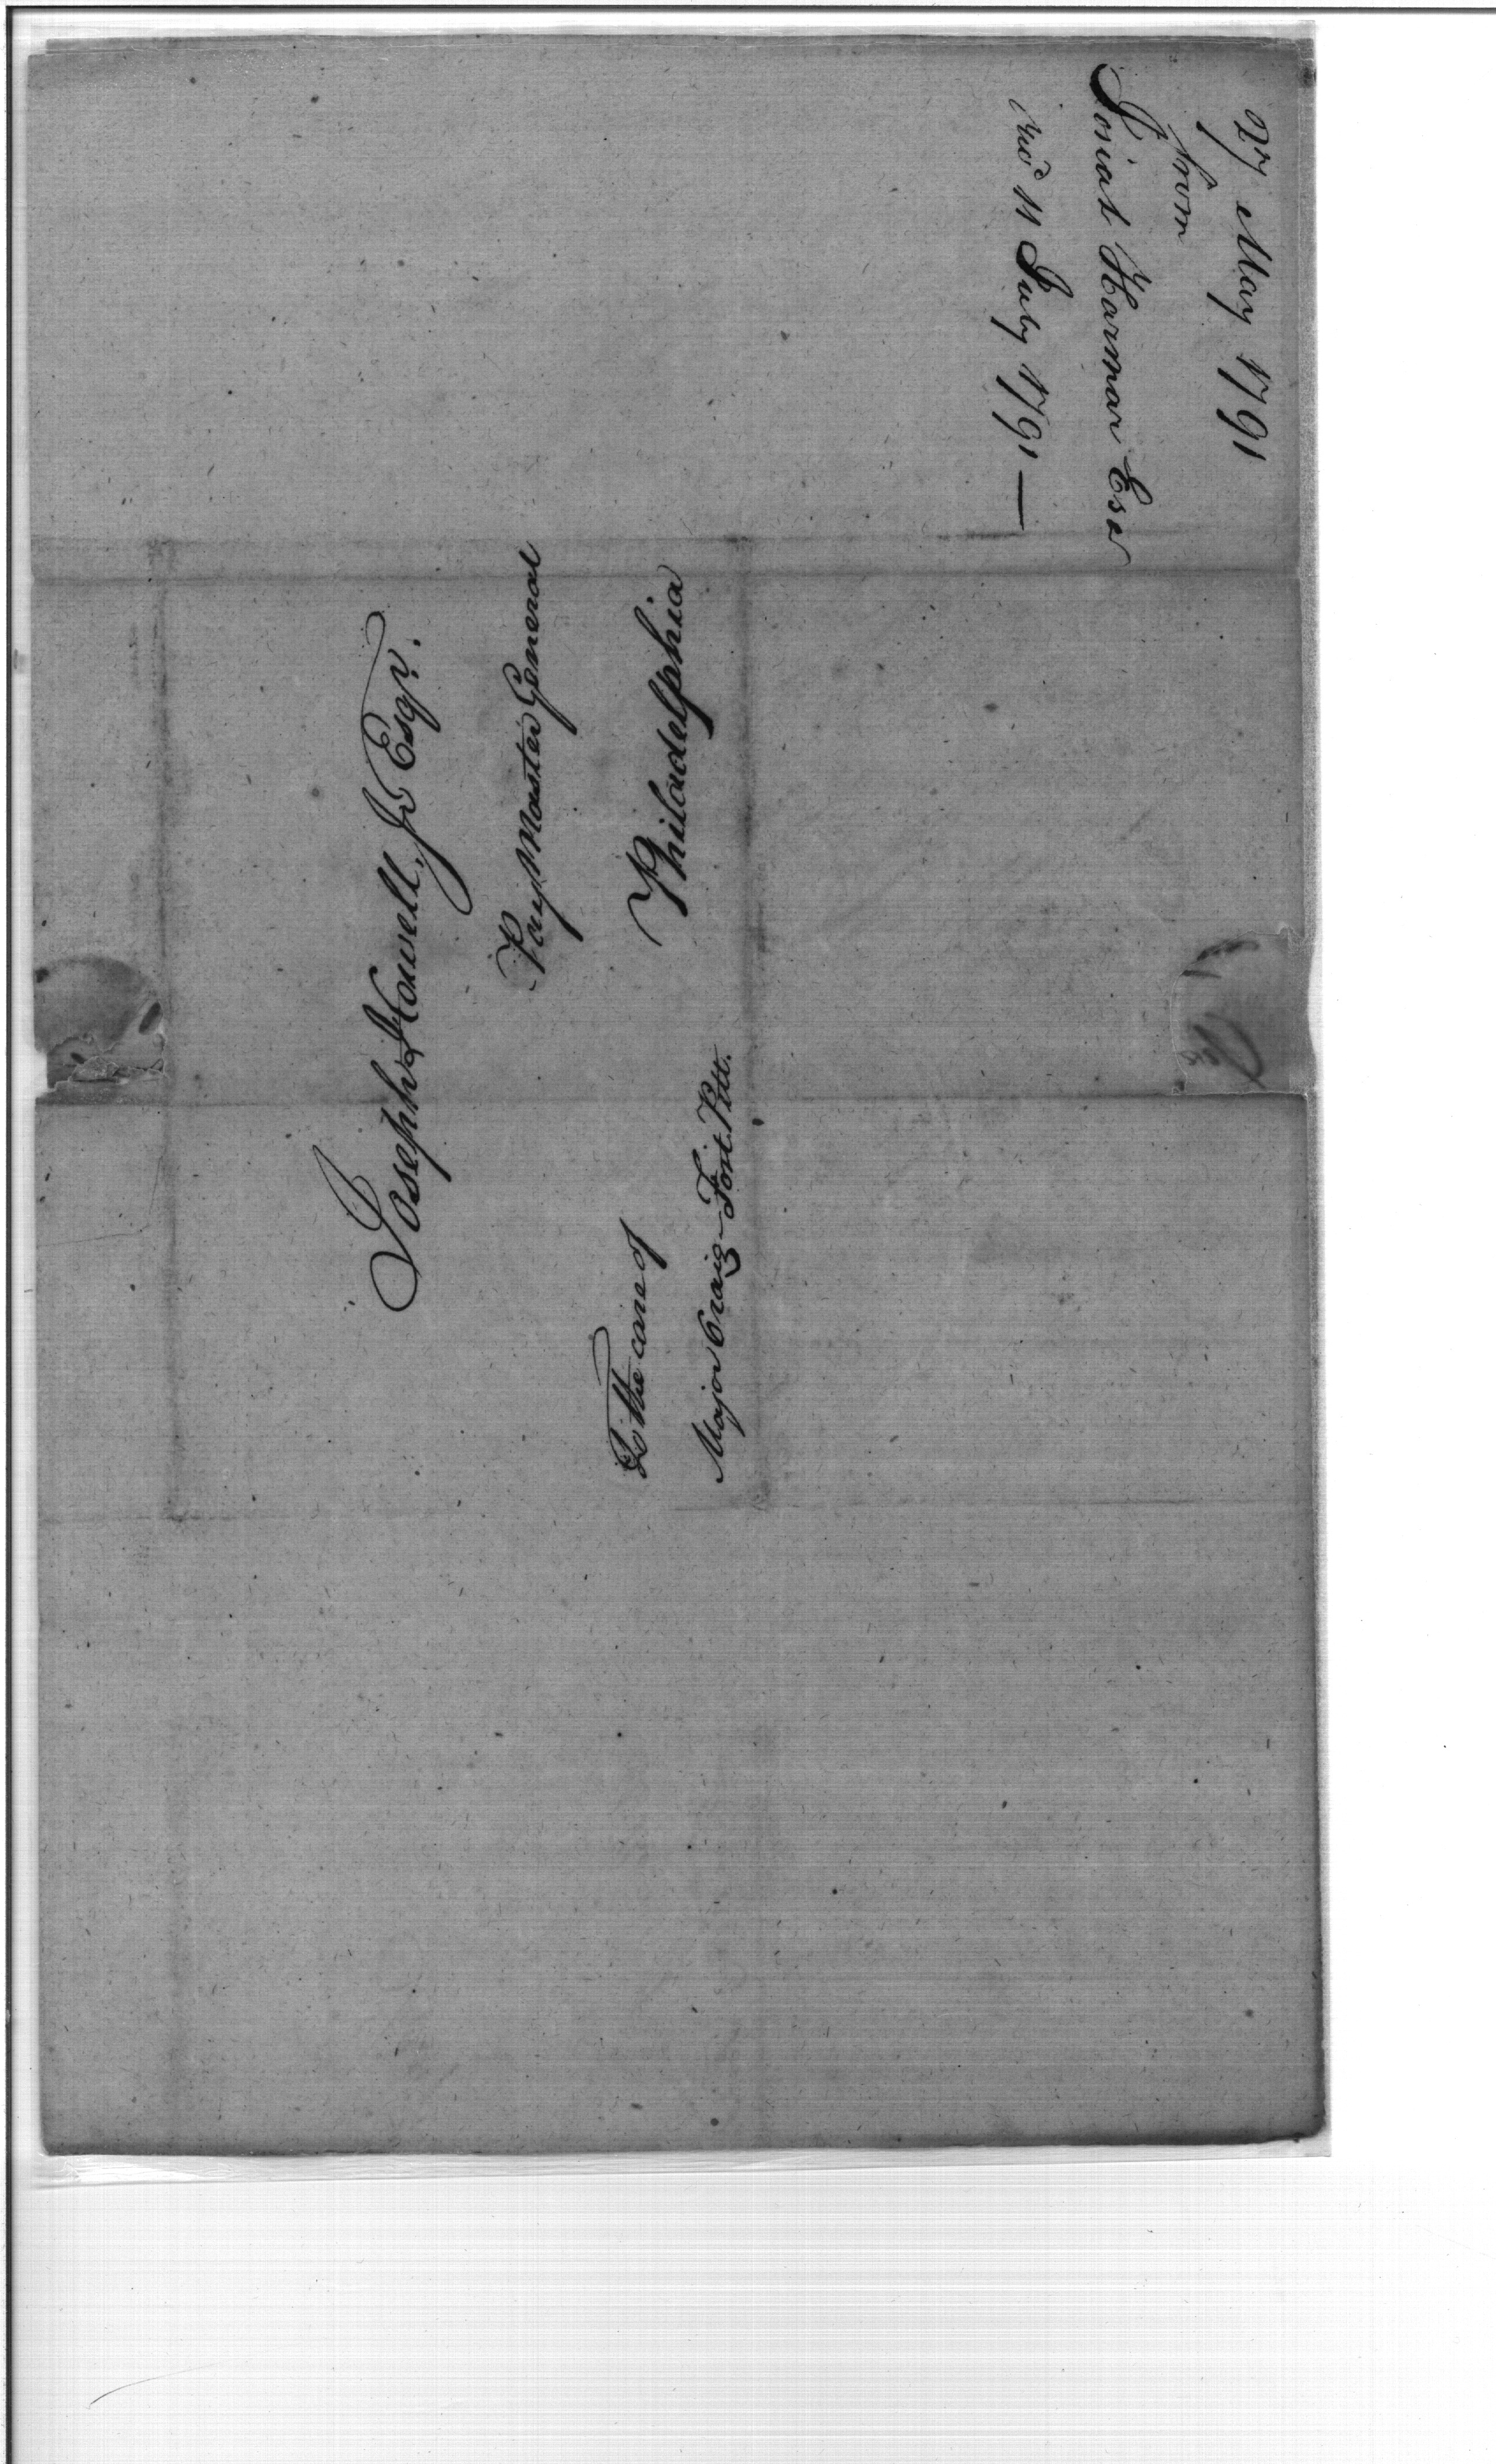 27 May 1791
from
Josiah Harmar Esq
recd 11 July 1791 —
Joseph Howell, Jr. Esqr.
Pay Master General
Philadelphia
To the care of
Major Craig – Fort Pitt.